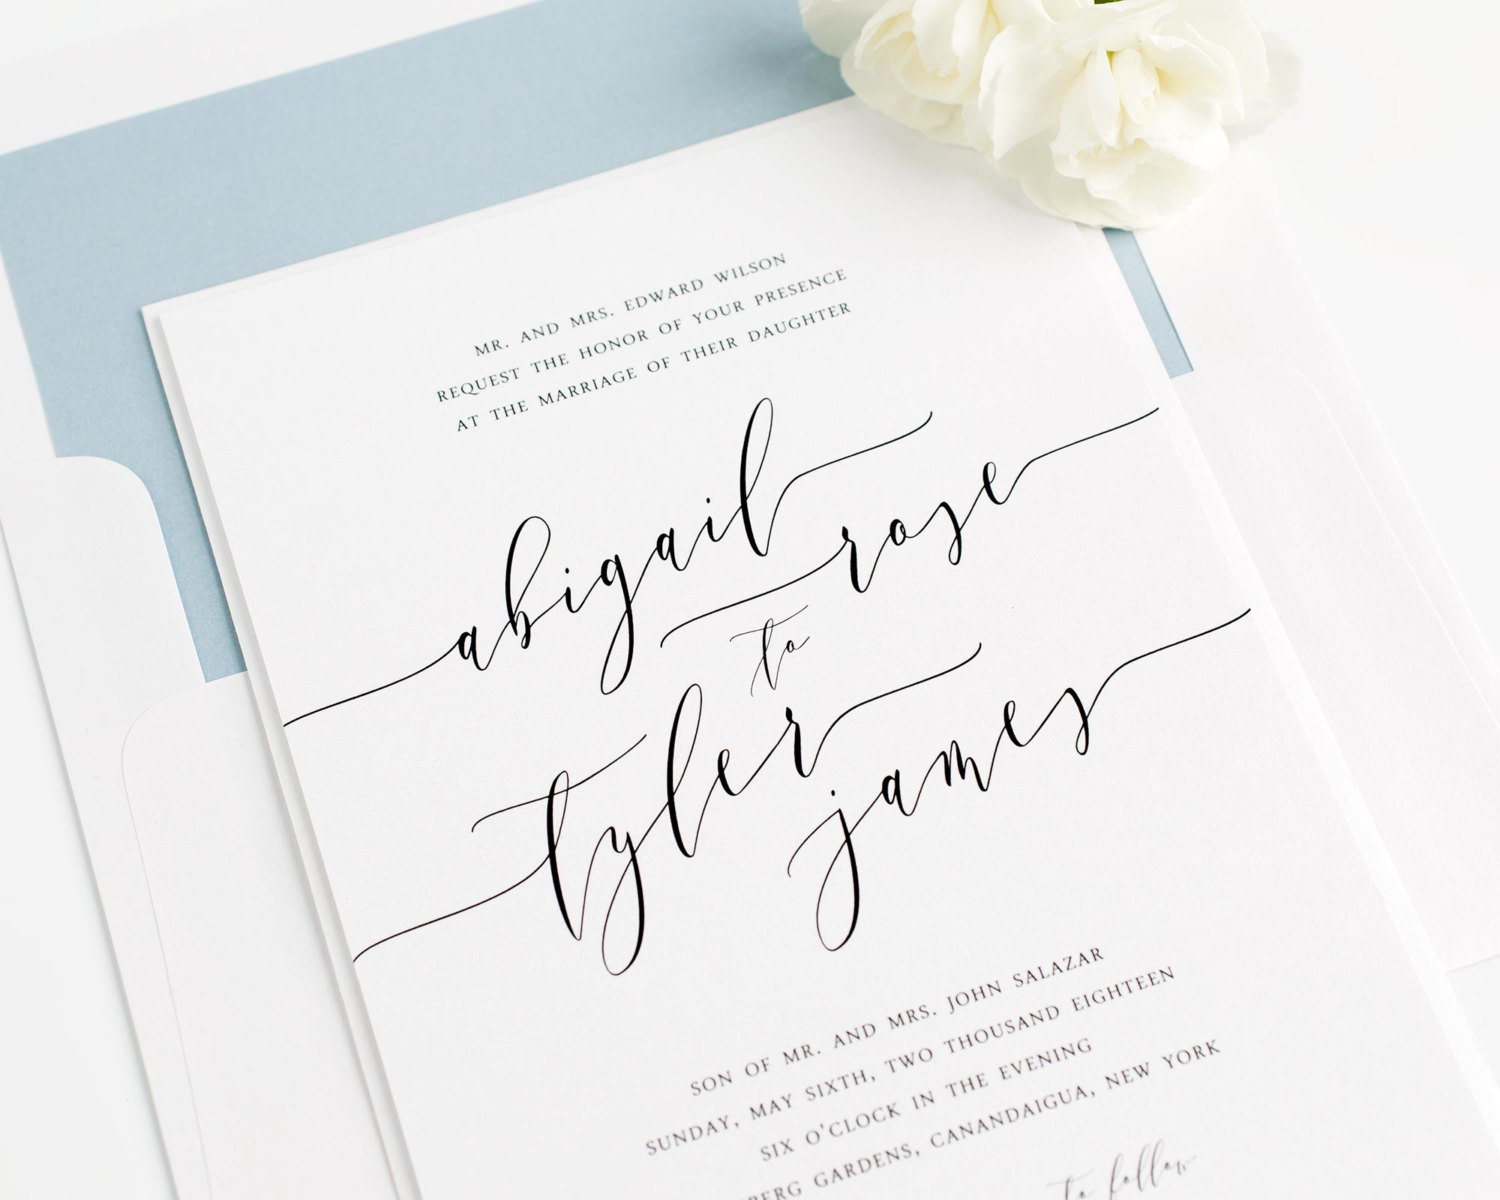 MR. AND MRS. EDWARD WILSON
REQUEST THE HONOR OF YOUR PRESENCE
AT THE MARRIAGE OF THEIR DAUGHTER
abigail
rose
to
tyler
james
SON OF MR. AND MRS. JOHN SALAZAR
SUNDAY, MAY SIXTH, TWO THOUSAND EIGHTEEN
SIX O'CLOCK IN THE EVENING
GARDENS, CANANDAIGUA, NEW YORK
to follow